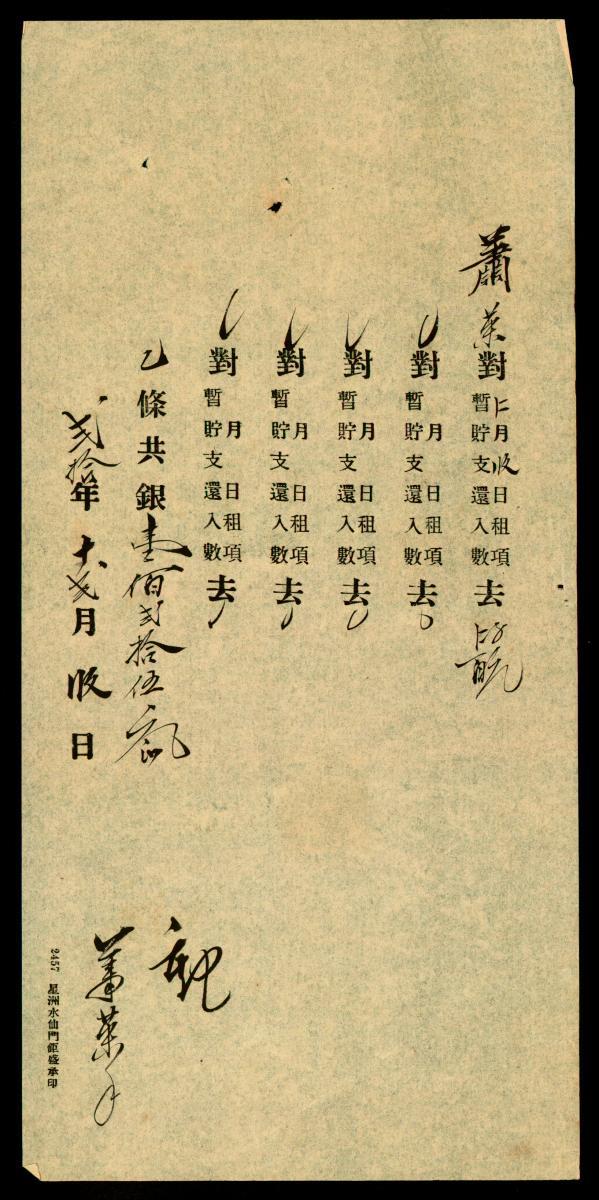 蕭葉對暫貯支還入數 月 日租項去
對暫貯支還入數 月 日租項去
對暫貯支還入數 月 日租項去
對暫貯支還入數 月 日租項去
對暫貯支還入數 月 日租項去
乙條共銀壹佰弍拾伍
弍拾年十弍月收日
蕭葉
2457 星洲水仙門鉅盛承印